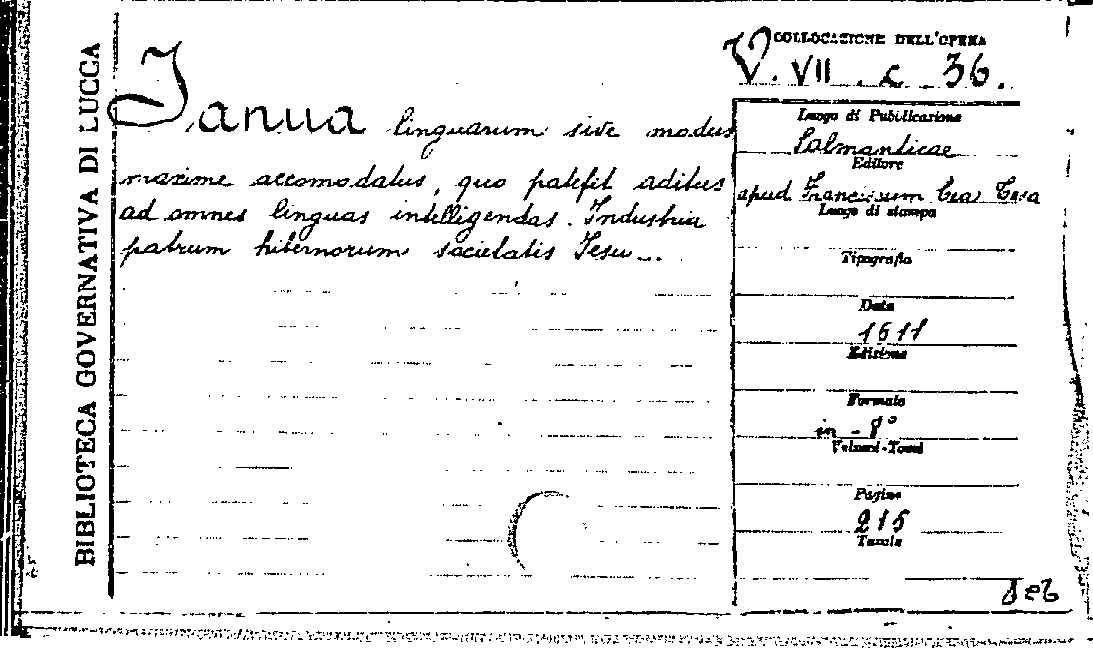 BIBLIOTECA GOVERNATIVA DI LUCCA
Janua linguarum sive modus
maxime accomodatus, quo patefit aditus
ad omnes linguas intelligendas. Industria
patrum hibernorum societatis Iesu...
COLLOCAZIONE DELL'OPERA
V. VII. c. 36.
Luogo di Pubblicazione
Salmanticae
Editore
apud Franciscum Cea Tesa
Luogo di stampa
Tipografia
Data
1611
Edizione
Formato
in-8°
Volumi-Tomi
Pagine
215
Tavole